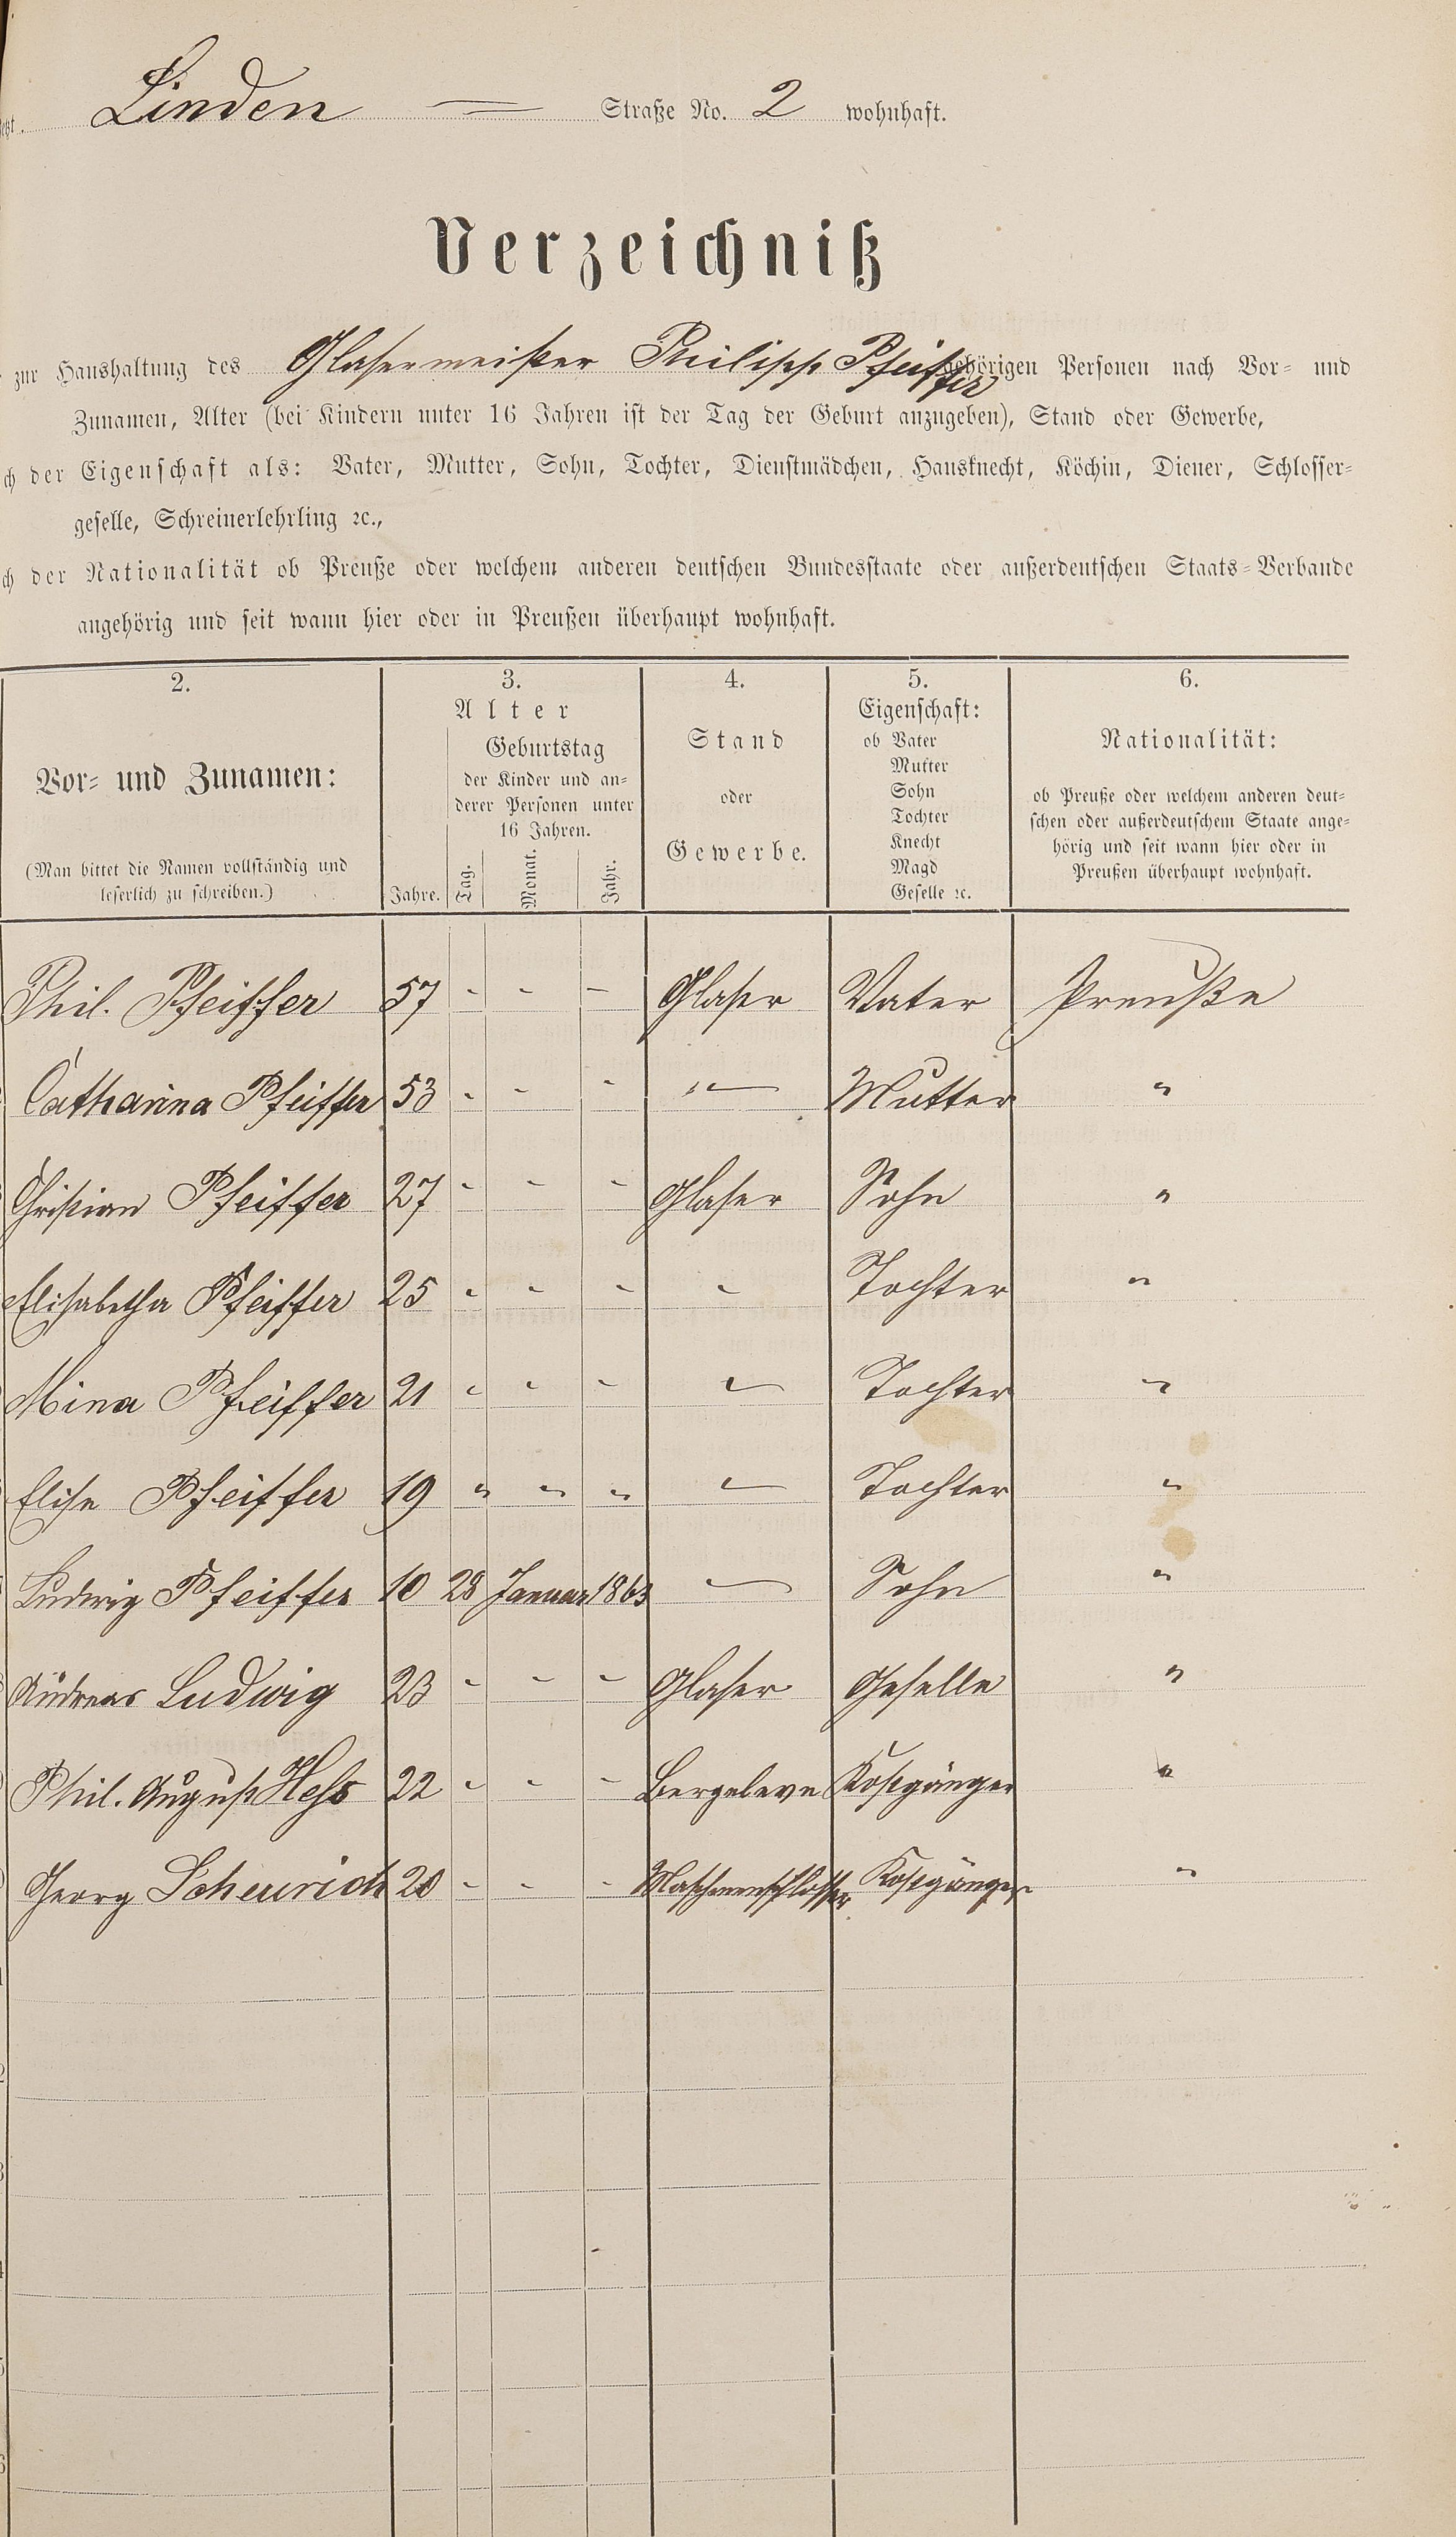 Linden — Straße No. 2 wohnhaft.
Verzeichniß
zur Haushaltung des Glasermeister Philipp Pfeiffer gehörigen Personen nach Vor- und
Zunamen, Alter (bei Kindern unter 16 Jahren ist der Tag der Geburt anzugeben), Stand oder Gewerbe,
ch der Eigenschaft als: Vater, Mutter, Sohn, Tochter, Dienstmädchen, Hausknecht, Köchin, Diener, Schlosser-
geselle, Schreinerlehrling ꝛc.,
ch der Nationalität ob Preuße oder welchem anderen deutschen Bundesstaate oder außerdeutschen Staats-Verbande
angehörig und seit wann hier oder in Preußen überhaupt wohnhaft.
2.
Vor- und Zunamen:
(Man bittet die Namen vollständig und
leserlich zu schreiben.)
3.
Alter
Geburtstag
der Kinder und an-
derer Personen unter
16 Jahren.
Jahre. Tag. Monat. Jahr.
4.
Stand
oder
Gewerbe.
5.
Eigenschaft:
ob Vater
Mutter
Sohn
Tochter
Knecht
Magd
Geselle ꝛc.
6.
Nationalität:
ob Preuße oder welchem anderen deut-
schen oder außerdeutschem Staate ange-
hörig und seit wann hier oder in
Preußen überhaupt wohnhaft.
Phil. Pfeiffer 57 - - - Glaser Vater Preuße
Catharina Pfeiffer 53 - - - " Mutter "
Christian Pfeiffer 27 - - - Glaser Sohn "
Elisabetha Pfeiffer 25 - - - - Tochter "
Mina Pfeiffer 21 - - - - Tochter "
Elise Pfeiffer 19 " " " - Tochter "
Ludwig Pfeiffer 10 28 Januar 1863 - Sohn "
Andreas Ludwig 23 - - - Glaser Geselle "
Phil. August Hess 22 - - - Bergeleve Kostgänger "
Georg Scheurich 20 - - - Maschinenschlosser Kostgänger "